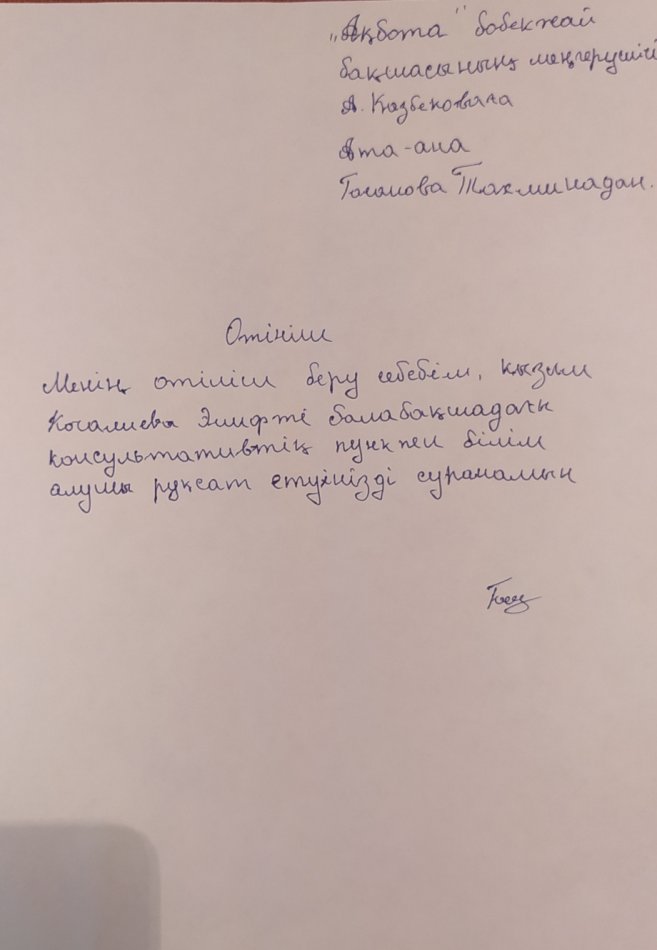 „Ақбота" бөбекжай
бақшасының меңгерушісі
А. Казбековаға
Ата-ана
Тахминадан.
Өтініш
Менің өтініш беру себебім, қызым
Эмифті балабақшадағы
консультативтік пункпен білім
алушы рұқсат етуіңізді сұранамын